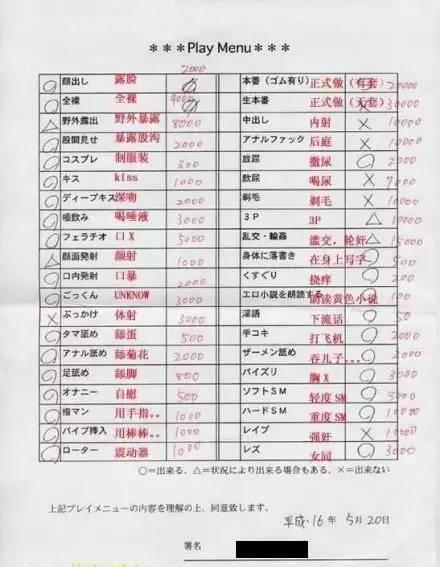 ＊＊＊Play Menu＊＊＊
2000
○ 顔出し 露脸 本番（ゴム有り） 正式做（有套） 20000
○ 全裸 全裸 4000 生本番 正式做（无套） 30000
△ 野外露出 野外暴露 8000 中出し 内射 × 10000
○ 股間見せ 暴露股沟 2000 アナルファック 后庭 × 10000
○ コスプレ 制服装 300 放尿 撒尿 ○ 2000
○ キス kiss 1000 飲尿 喝尿 ×
○ ディープキス 深吻 2000 剃毛 剃毛 × 10000
○ 唾飲み 喝唾液 3000 3P 3P △ 10000
○ フェラチオ 口X 5000 乱交・輪姦 滥交，轮奸 △ 15000
△ 顔面発射 颜射 1000 身体に落書き 在身上写字 ○ 500
○ 口内発射 口暴 2000 くすぐり 挠痒 ○ 200
○ ごっくん UNKNOW 3000 エロ小説を朗読する 朗读黄色小说 100
× ぶっかけ 体射 3000 淫語 下流话 ○ 50
○ タマ舐め 舔蛋 500 手コキ 打飞机 ○ 2000
○ アナル舐め 舔菊花 2000 ザーメン舐め 吞儿子... ○ 2000
○ 足舐め 舔脚 800 パイズリ 胸X ○ 3000
○ オナニー 自慰 500 ソフトSM 轻度SM ○
○ 指マン 用手指.. 1000 ハードSM 重度SM ○
○ バイブ挿入 用棒棒.. 1000 レイプ 强奸 ×
○ ローター 震动器 1000 レズ 女同 ○ 3000
○＝出来る、△＝状況により出来る場合もある、×＝出来ない
上記プレイメニューの内容を理解の上、同意致します。
平成・16年 5月20日
署名